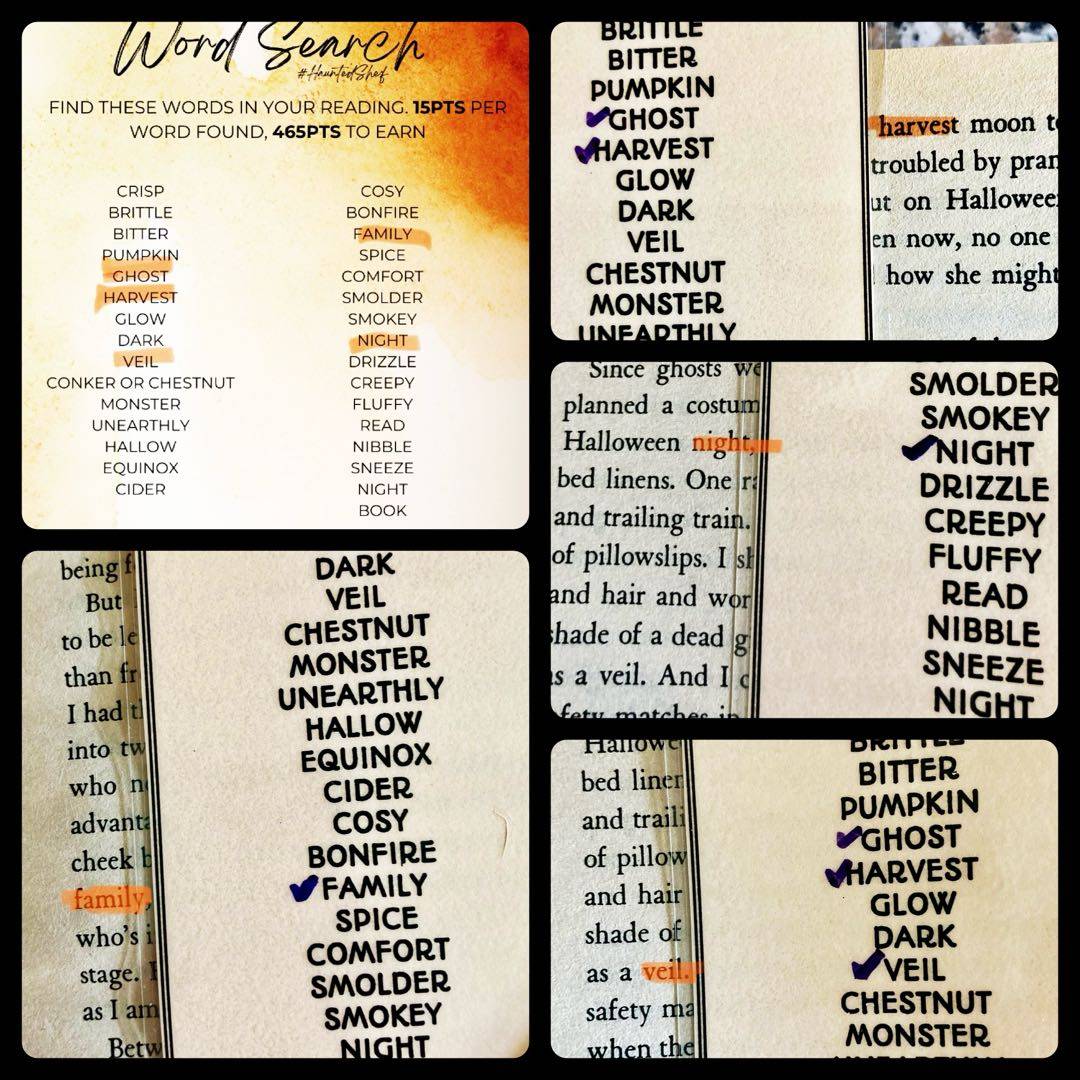 Word Search
#HauntedShelf
FIND THESE WORDS IN YOUR READING. 15PTS PER
WORD FOUND, 465PTS TO EARN
CRISP
BRITTLE
BITTER
PUMPKIN
GHOST
HARVEST
GLOW
DARK
VEIL
CONKER OR CHESTNUT
MONSTER
UNEARTHLY
HALLOW
EQUINOX
CIDER
COSY
BONFIRE
FAMILY
SPICE
COMFORT
SMOLDER
SMOKEY
NIGHT
DRIZZLE
CREEPY
FLUFFY
READ
NIBBLE
SNEEZE
NIGHT
BOOK
BRITTLE
BITTER
PUMPKIN
GHOST
HARVEST
GLOW
DARK
VEIL
CHESTNUT
MONSTER
UNEARTHLY
harvest moon
troubled by
on
en now, no one
how she might
Since ghosts
planned a
Halloween night,
bed linens. One
and trailing train.
of pillowslips. I
and hair and
shade of a dead
as a veil. And I
matches
SMOLDER
SMOKEY
NIGHT
DRIZZLE
CREEPY
FLUFFY
READ
NIBBLE
SNEEZE
NIGHT
being
But
to be
than
I had
into
who
cheek
family,
who's
stage.
as I am
DARK
VEIL
CHESTNUT
MONSTER
UNEARTHLY
HALLOW
EQUINOX
CIDER
COSY
BONFIRE
FAMILY
SPICE
COMFORT
SMOLDER
SMOKEY
NIGHT
bed
and
of
and hair
shade of
as a veil.
safety
when the
BRITTLE
BITTER
PUMPKIN
GHOST
HARVEST
GLOW
DARK
VEIL
CHESTNUT
MONSTER